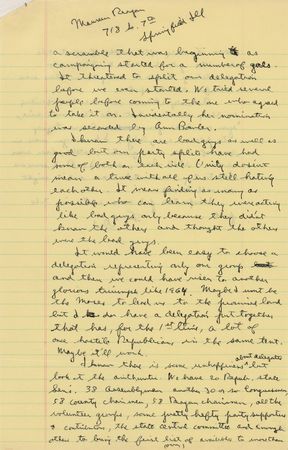 Maureen Reagan
718 S. 7th
Springfield Ill
a scramble that was beginning as
campaigning started for a number of goals.
It threatened to split our delegation
before we even started. We tried several
people before coming to the one who agreed
to take it on. Incidentally her nomination
was seconded by Ann Bowler.
I know there are bad guys as well as
good but our party split have had
some of both on each side. Unity doesn't
mean a time with all of us still hating
each other. It means finding as many as
possible who can learn they were acting
like bad guys only because they didn't
know the other and thought the others
was the bad guys.
It would have been easy to choose a
delegation representing only one group
and then we could have risen to another
glorious triumph like 1964. Maybe I won't be
the Moses to lead us to the promised land
but I do have a delegation put together
that has, for the 1st time, a lot of
once hostile Republicans in the same tent.
Maybe it'll work.
I know there is some unhappiness about delegates
but look at the arithmetic. We have 20 Repub. state
Sens., 38 Assemblymen another 20 or so Congressmen
58 county chairmen, 58 Reagan chairmen, all the
volunteer groups, some pretty hefty party supporters
& contributors, the state central committee and enough
others to bring the first list of availables to more than